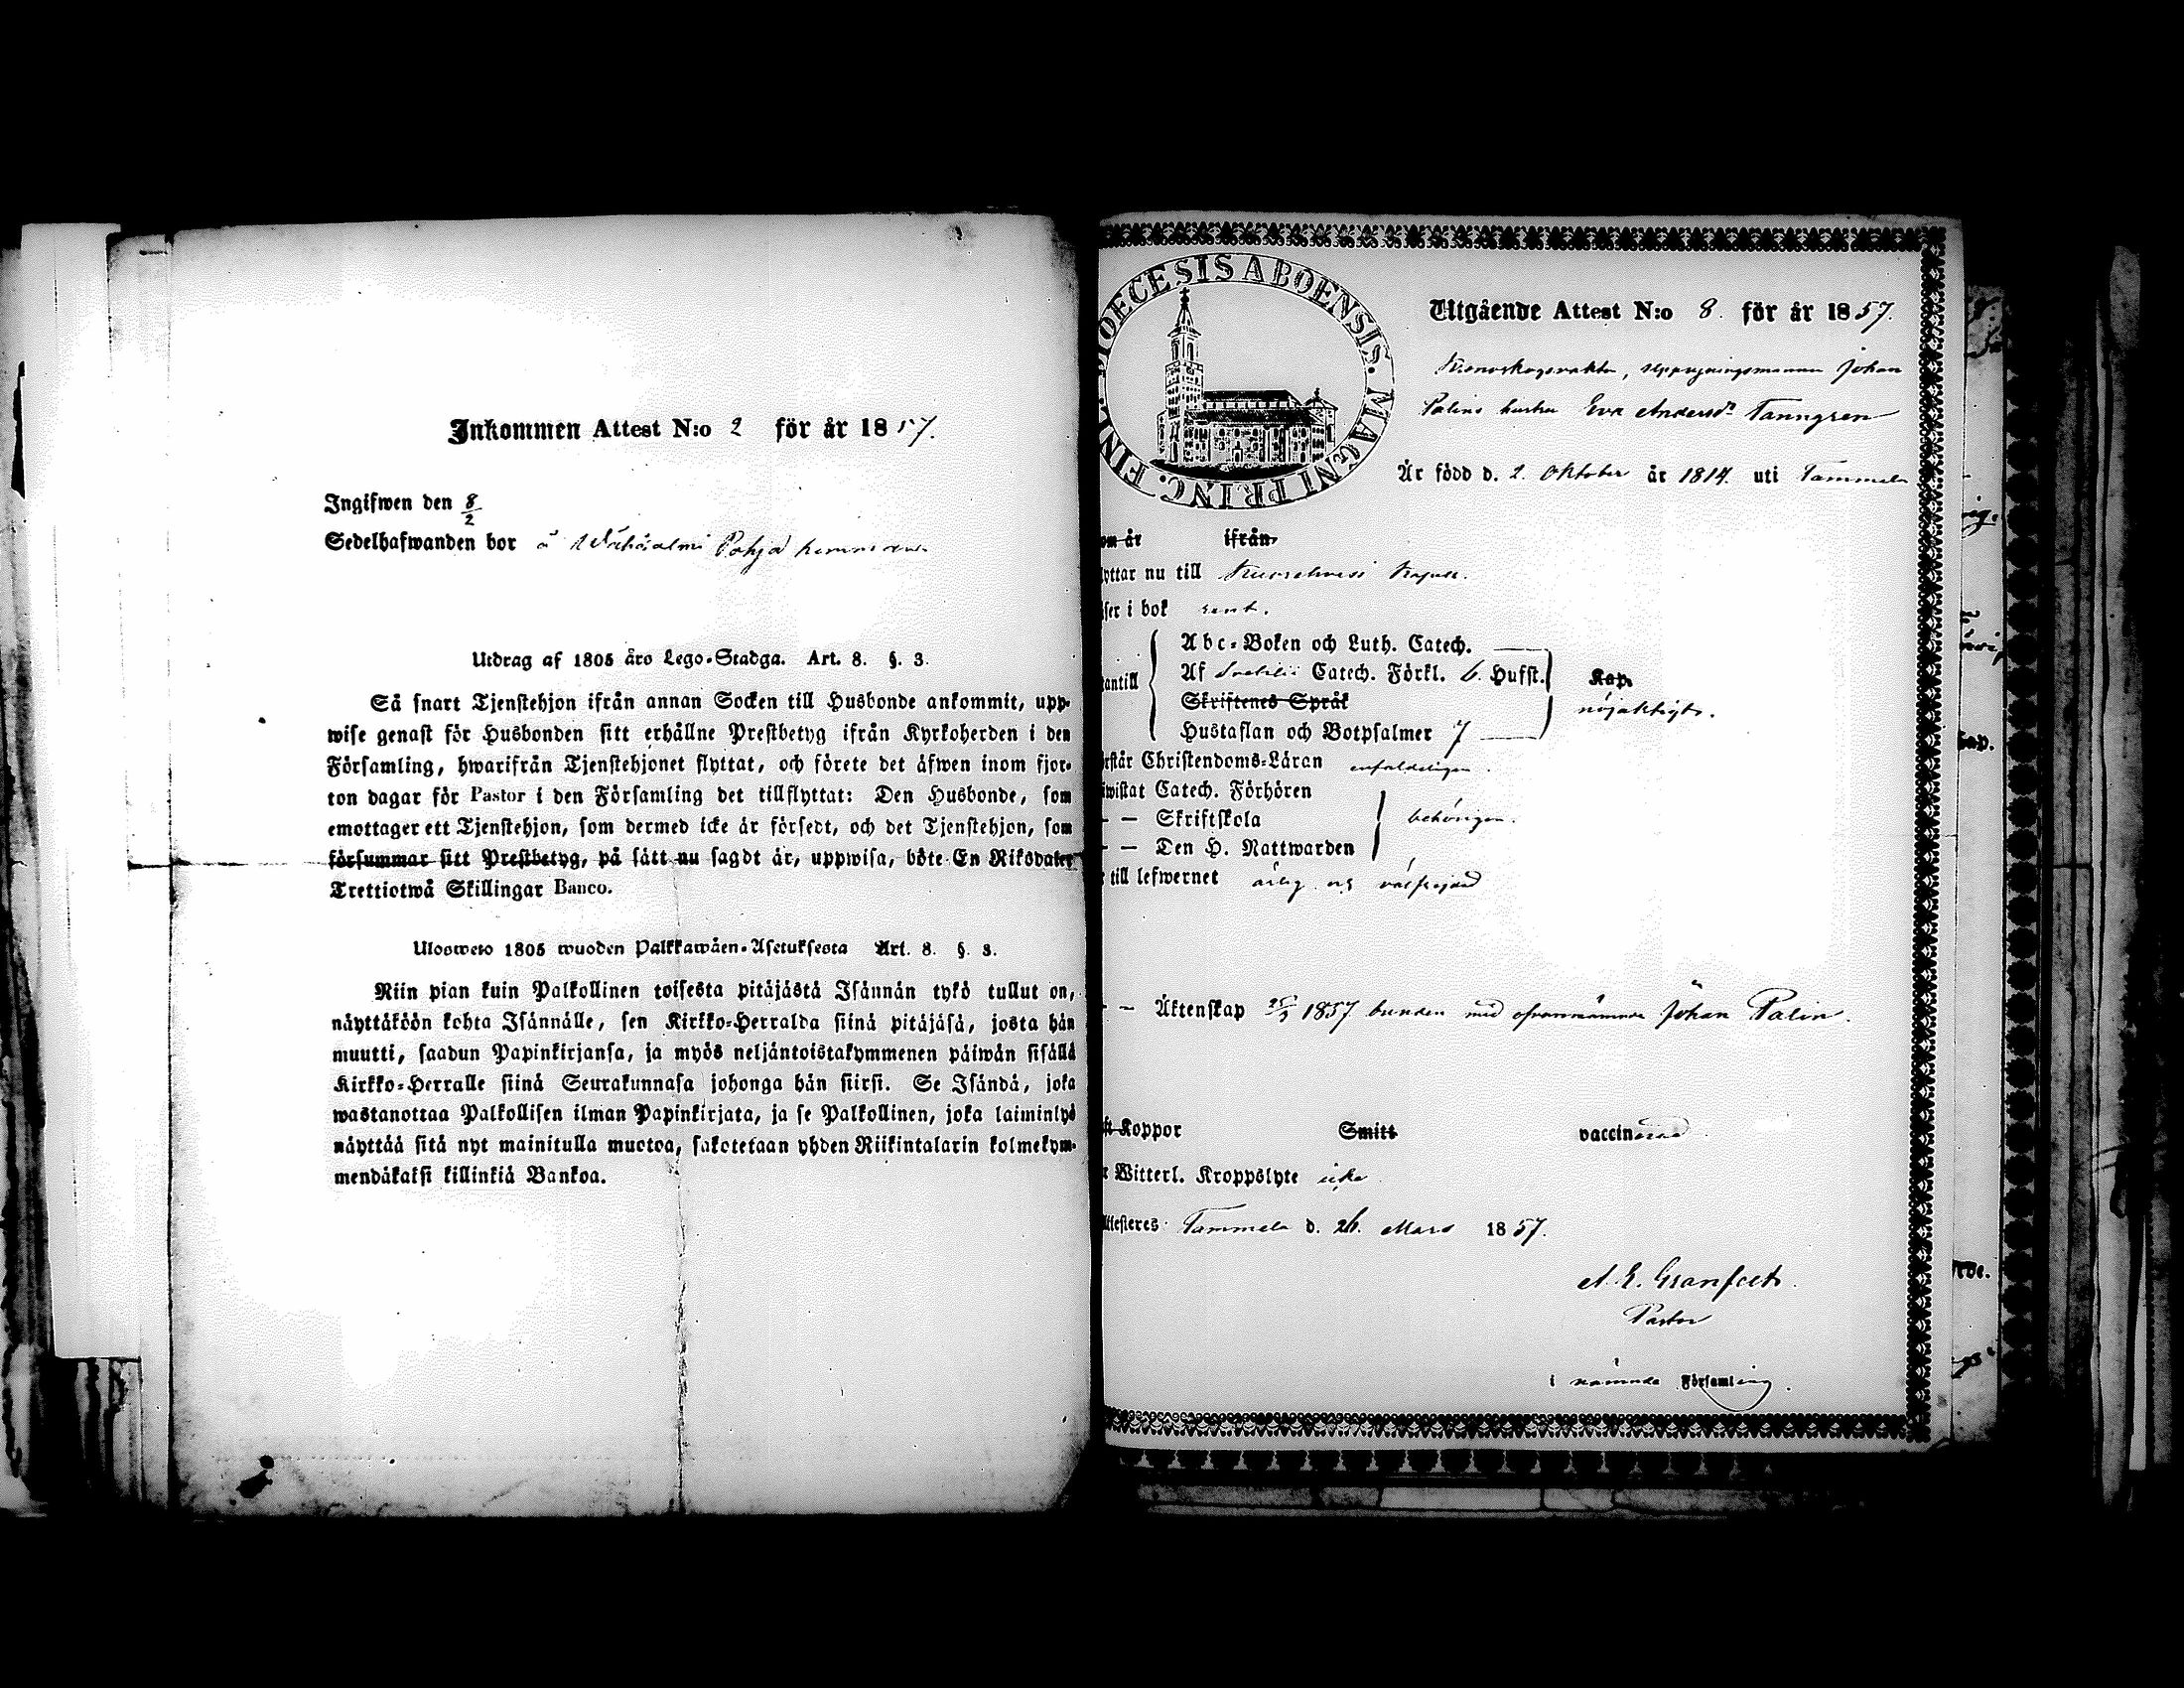 Inkommen Attest N:o 2 för år 1857.
Ingifwen den 8/2
Sedelhafwanden bor å Wähäsalmi Pohja hemman
Utdrag af 1805 åro Lego-Stadga. Art. 8. §. 3.
Så snart Tjenstehjon ifrån annan Socken till Husbonde ankommit, upp-
wise genast för Husbonden sitt erhållne Prestbetyg ifrån Kyrkoherden i den
Församling, hwarifrån Tjenstehjonet flyttat, och förete det äfwen inom fjor-
ton dagar för Pastor i den Församling det tillflyttat: Den Husbonde, som
emottager ett Tjenstehjon, som dermed icke är försedt, och det Tjenstehjon, som
försummar sitt Prestbetyg, på sätt nu sagdt är, uppwisa, böte En Riksdaler
Trettiotwå Skillingar Banco.
Ulosweto 1805 wuoden Palkkawäen-Asetuksesta Art. 8. §. 3.
Niin pian kuin Palkollinen toisesta pitäjästä Isännän tykö tullut on,
näyttäköön kohta Isännälle, sen Kirkko-Herralda siinä pitäjäsä, josta hän
muutti, saadun Papinkirjansa, ja myös neljäntoistakymmenen päiwän sisällä
Kirkko-Herralle siinä Seurakunnasa johonga hän siirsi. Se Isändä, joka
wastanottaa Palkollisen ilman Papinkirjata, ja se Palkollinen, joka laiminlyö
näyttää sitä nyt mainitulla muotoa, sakotetaan yhden Riikintalarin kolmekym-
mendäkaksi killinkiä Bankoa.
DIOECESIS ABOENSIS. MAGNI PRINC. FINL.
Utgående Attest N:o 8. för år 1857.
Kronoskogsvakten, Johan
Palins hustru Eva Andersdr Tanngren
Är född d. 2. Oktober år 1814. uti Tammela
om år ifrån
lyttar nu till Kuorehvesi Kapell.
äser i bok rent.
Abc-Boken och Luth. Catech.
Af Svebilii Catech. Förkl. 6. Hufst. Kap.
antill
Skriftenes Språk nöjaktigt.
Hustaflan och Botpsalmer 7
rstår Christendoms-Läran enfaldeligen.
iwistat Catech. Förhören
– – Skriftskola behörigen.
– – Den H. Nattwarden
till lefwernet ärlig och välfrejdad
– – Äktenskap 25/3 1857 bunden med ofvannämnde Johan Palin.
ft Koppor Smitt vaccinerad.
r Witterl. Kroppslyte icke
Attesteres Tammela d. 26. Mars 1857.
A. E. Granfelt.
Pastor
i nämnde Församling.